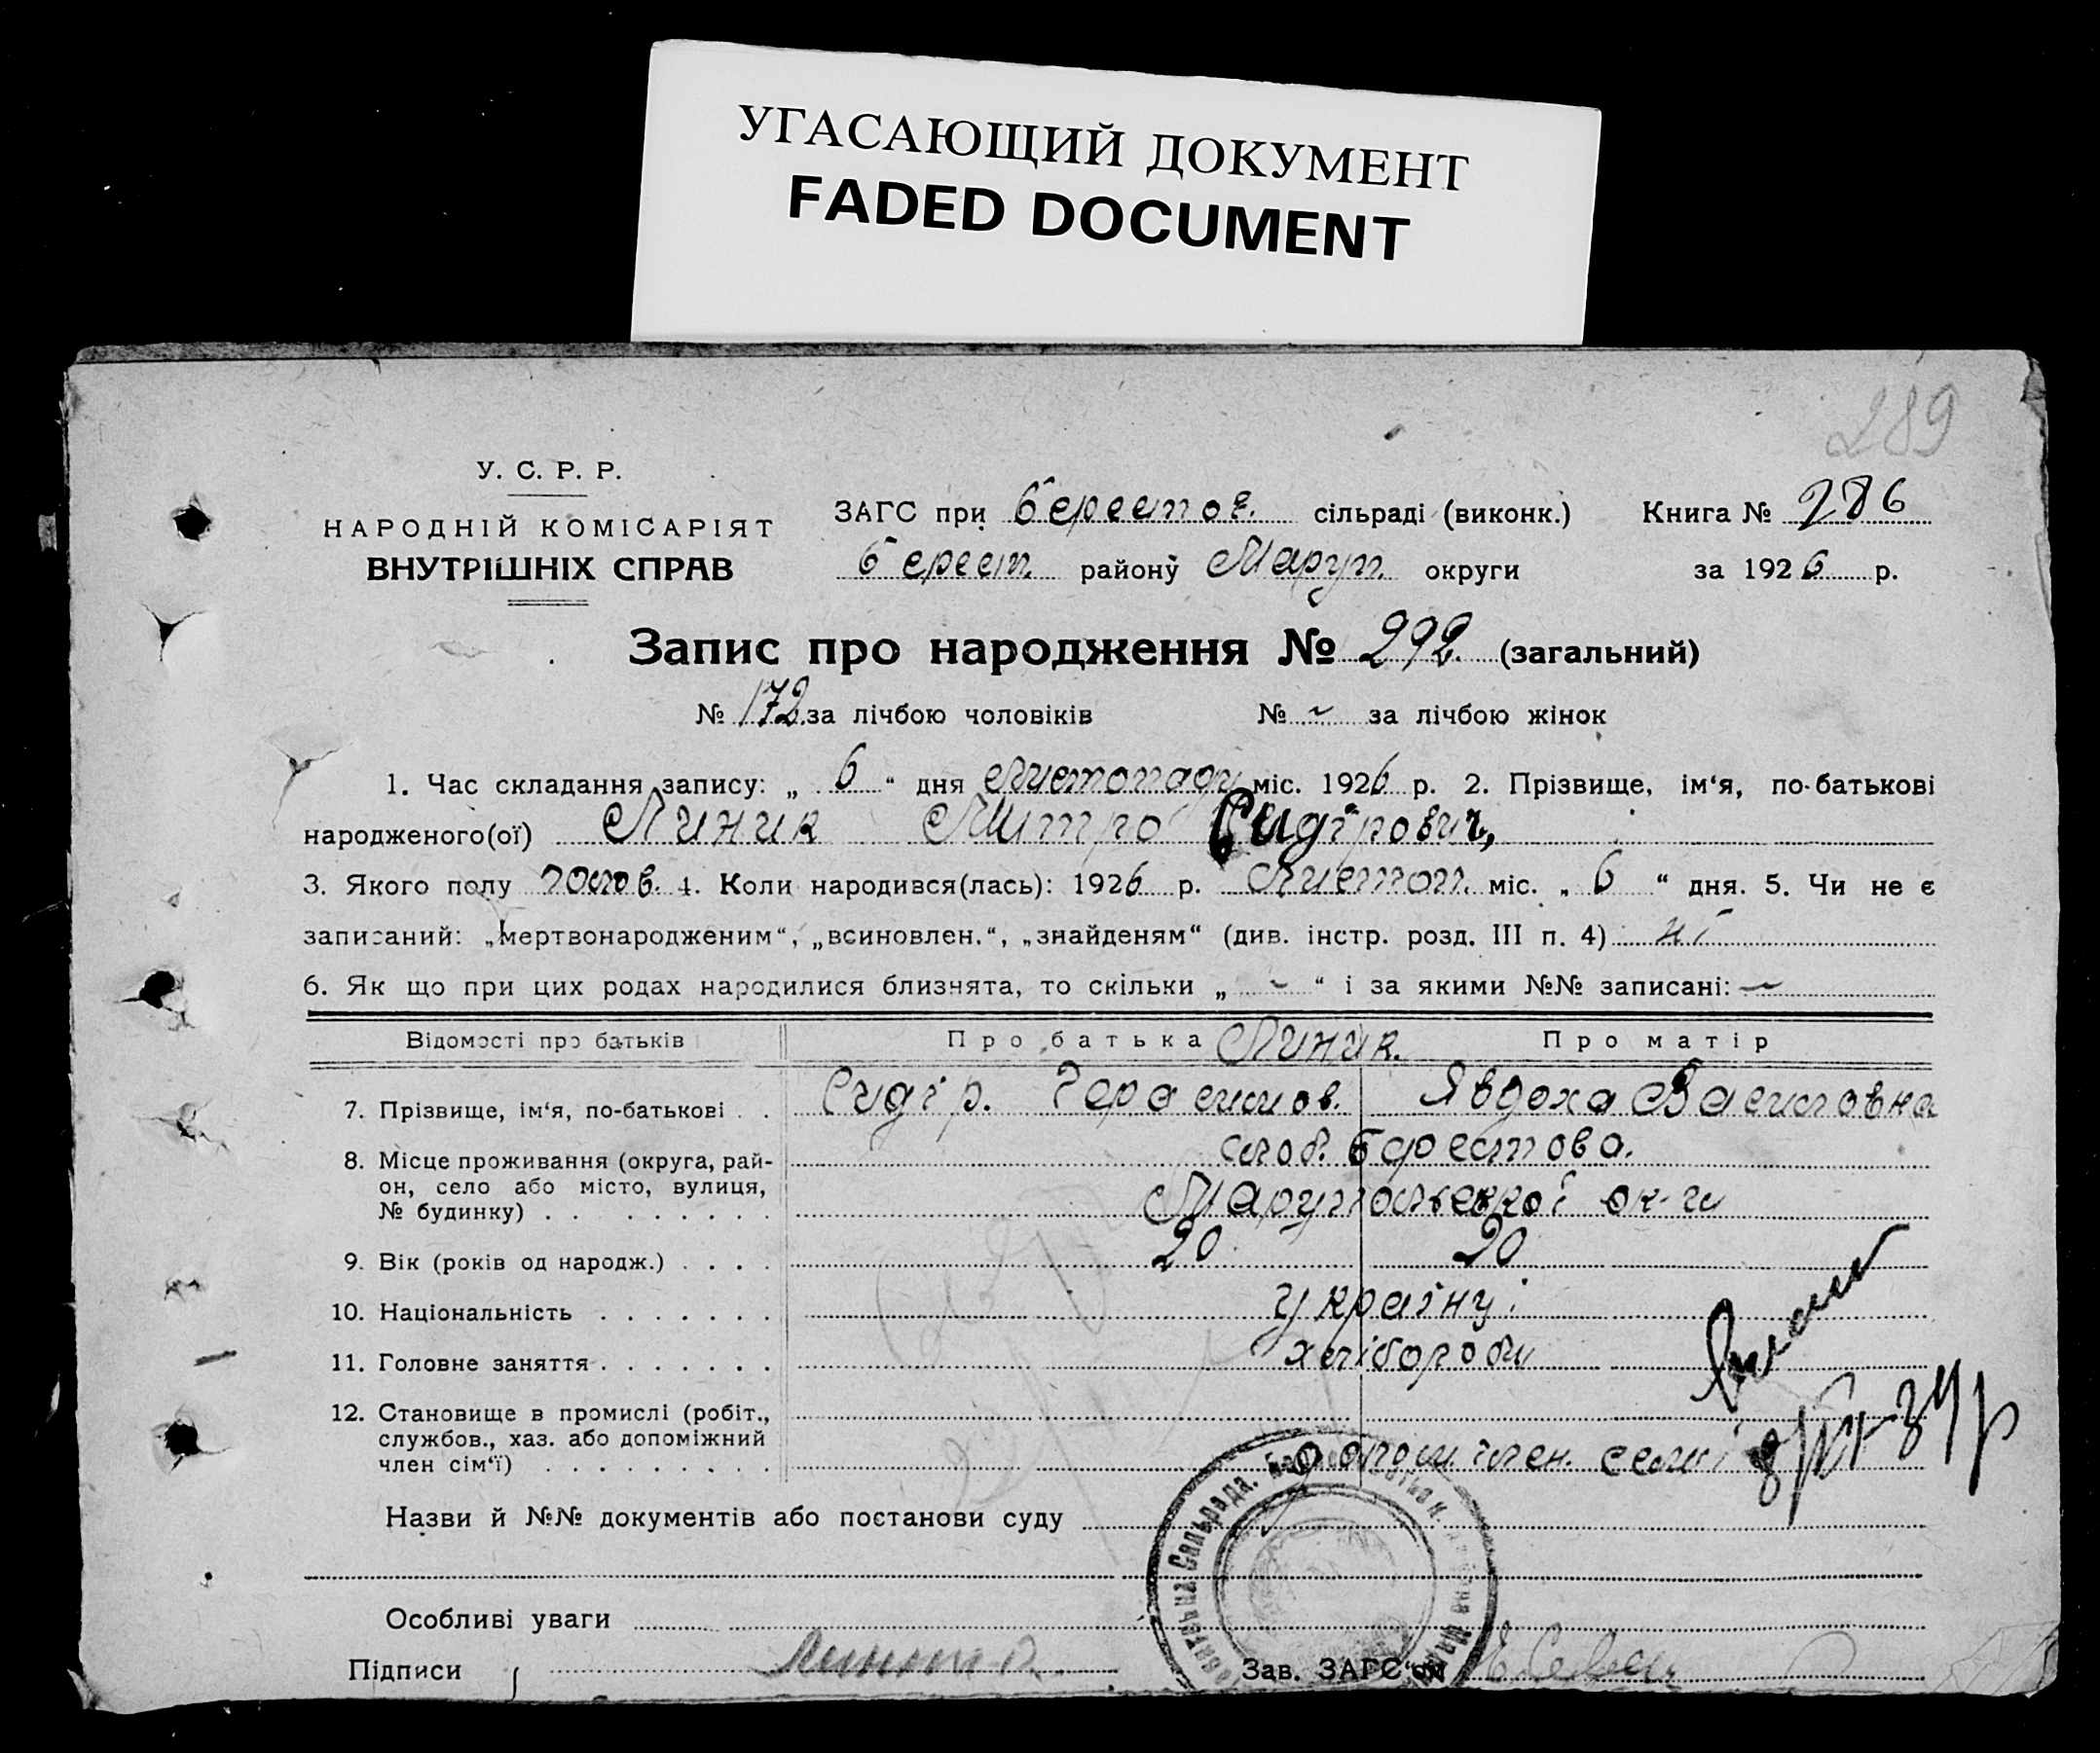 УГАСАЮЩИЙ ДОКУМЕНТ
FADED DOCUMENT
289
У. С. Р. Р.
НАРОДНІЙ КОМІСАРІЯТ
ВНУТРІШНІХ СПРАВ
ЗАГС при Берестов. сільраді (виконк.) Книга № 286
Берест. району Маруп. округи за 1926 р.
Запис про народження № 292. (загальний)
№ 172 за лічбою чоловіків № - за лічбою жінок
1. Час складання запису: „ 6 " дня Листопаду міс. 1926 р. 2. Прізвище, ім'я, по-батькові
народженого(ої) Линик Митро Сидірович,
3. Якого полу чолов. 4. Коли народився(лась): 1926 р. Листоп. міс. „ 6 " дня. 5. Чи не є
записаний: „мертвонародженим", „всиновлен.", „знайденям" (див. інстр. розд. III п. 4) ні
6. Як що при цих родах народилися близнята, то скільки „ - " і за якими №№ записані: -
Відомості про батьків Про батька Линик. Про матір
7. Прізвище, ім'я, по-батькові . . Сидір. Герасимов. Явдоха Василовна
8. Місце проживання (округа, рай- слоб. Берестова.
он, село або місто, вулиця, Марупольської ок-ги
№ будинку) . . . . . . . . .
9. Вік (років од народж.) . . . . 20 20
10. Національність . . . . . . . україну:
11. Головне заняття . . . . . . . хлібороби
12. Становище в промислі (робіт.,
службов., хаз. або допоміжний
член сім'ї) . . . . . . . . . допом. член. семі
8/VI-34р
Назви й №№ документів або постанови суду
Особливі уваги
Підписи Зав. ЗАГС'ом